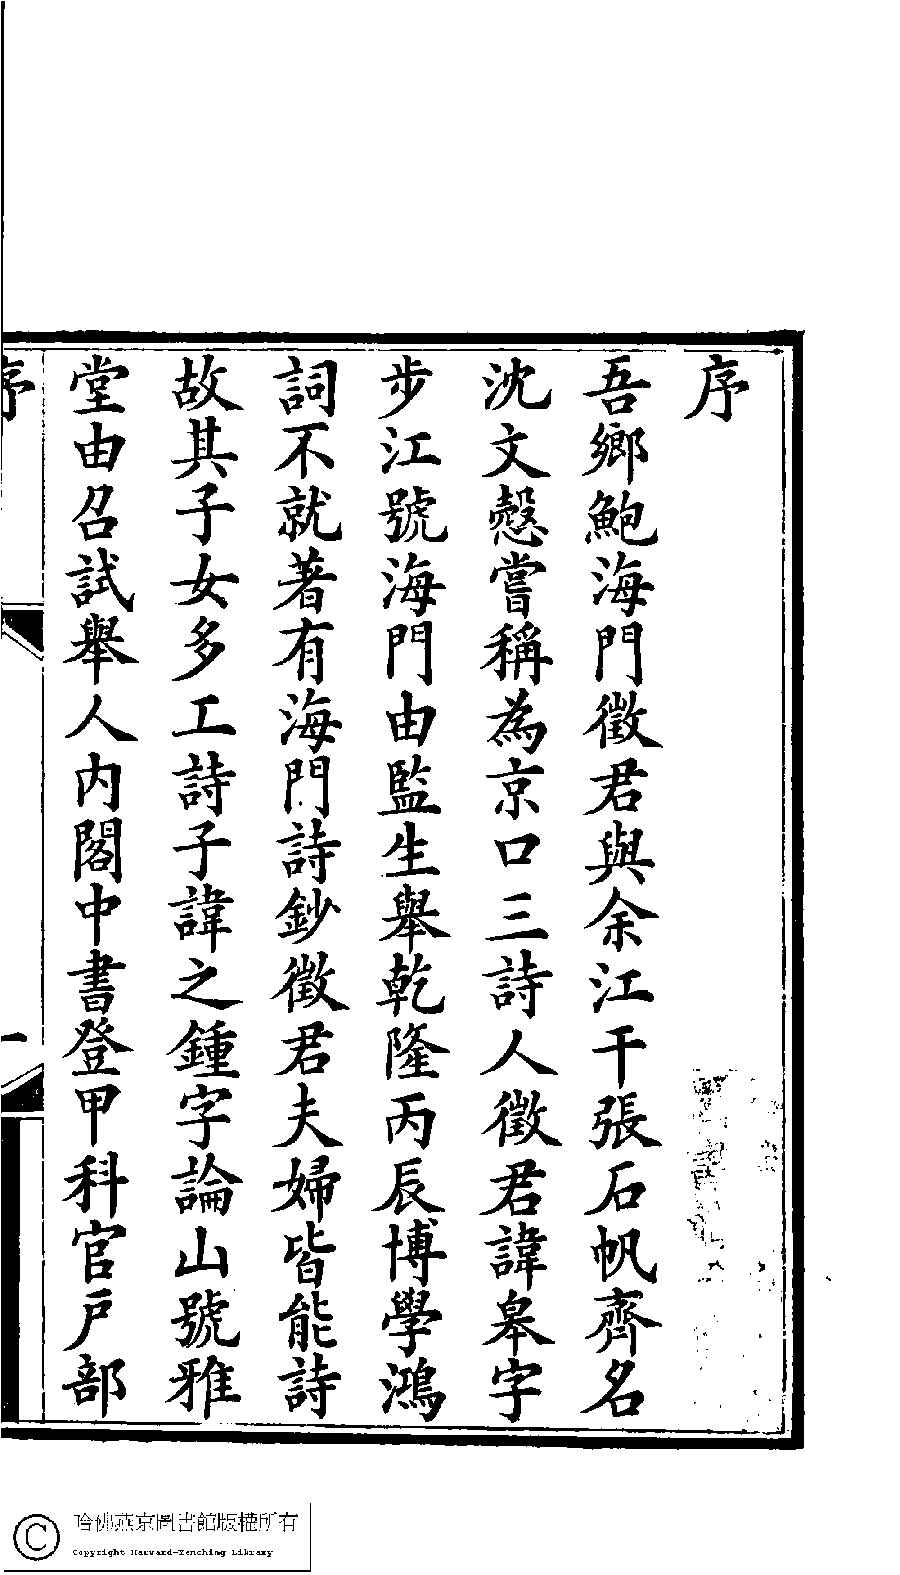 序
吾鄉鮑海門徵君與余江干張石帆齊名
沈文慤嘗稱為京口三詩人徵君諱皋字
步江號海門由監生舉乾隆丙辰博學鴻
詞不就著有海門詩鈔徵君夫婦皆能詩
故其子女多工詩子諱之鍾字論山號雅
堂由召試舉人內閣中書登甲科官戶部
序
一
哈佛燕京圖書館版權所有
Copyright Harvard-Yenching Library